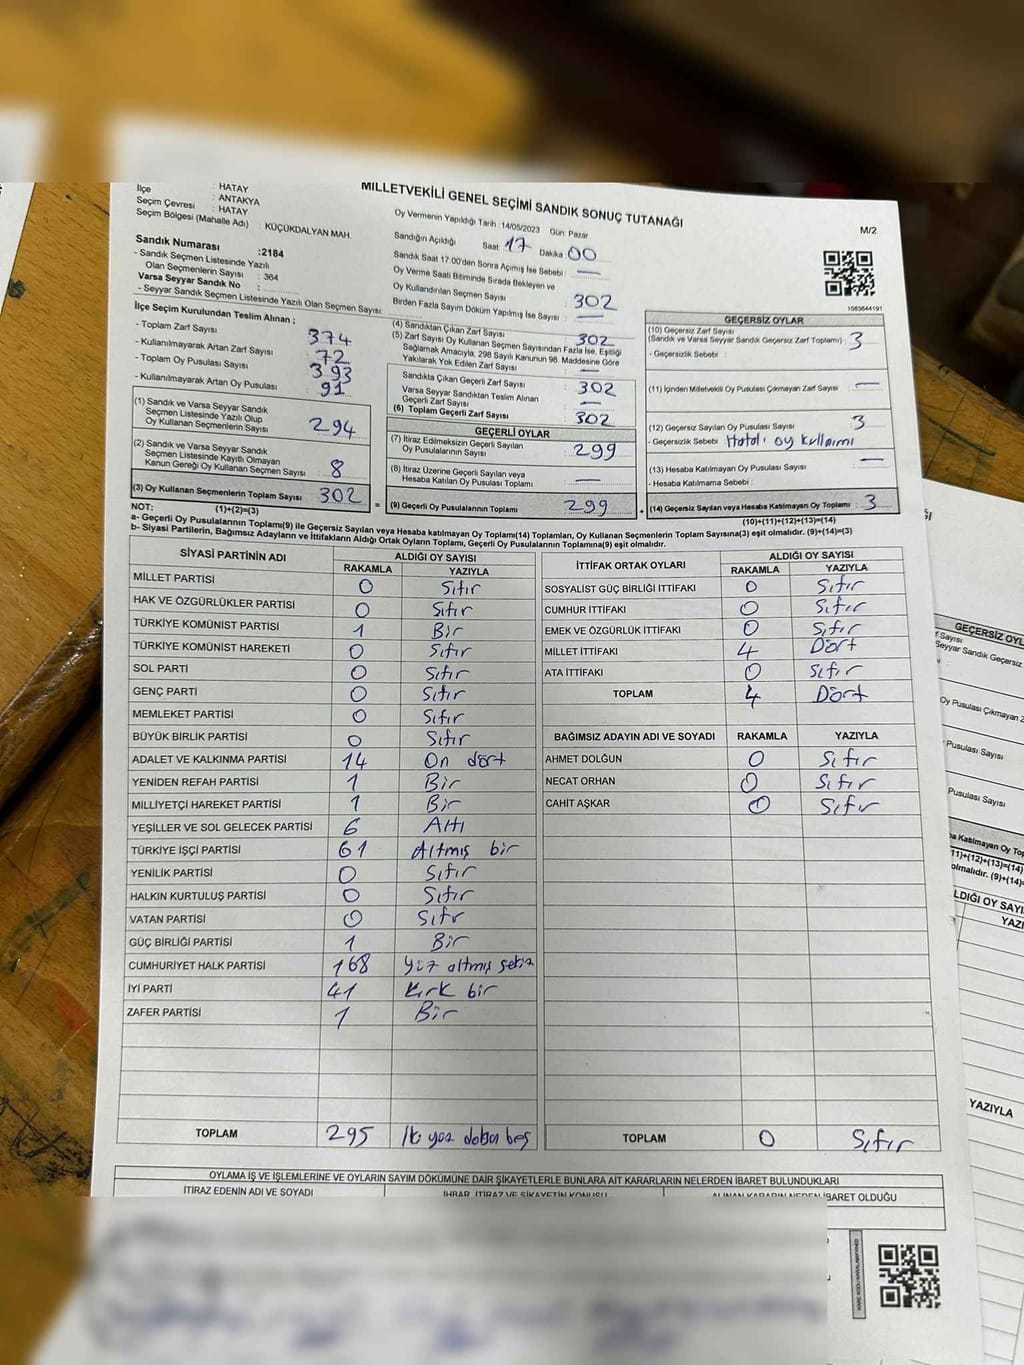 MİLLETVEKİLİ GENEL SEÇİMİ SANDIK SONUÇ TUTANAĞI
M/2
İlçe : HATAY
Seçim Çevresi : ANTAKYA
Seçim Bölgesi (Mahalle Adı) : HATAY
: KÜÇÜKDALYAN MAH.
Sandık Numarası :2184
- Sandık Seçmen Listesinde Yazılı
Olan Seçmenlerin Sayısı : 364
Varsa Seyyar Sandık No :
- Seyyar Sandık Seçmen Listesinde Yazılı Olan Seçmen Sayısı:
Oy Vermenin Yapıldığı Tarih :14/05/2023 Gün: Pazar
Sandığın Açıldığı Saat :17 Dakika :00
Sandık Saat 17.00'den Sonra Açılmış İse Sebebi : —
Oy Verme Saati Bitiminde Sırada Bekleyen ve
Oy Kullandırılan Seçmen Sayısı : 302
Birden Fazla Sayım Döküm Yapılmış İse Sayısı : —
1083644191
İlçe Seçim Kurulundan Teslim Alınan ;
- Toplam Zarf Sayısı : 374
- Kullanılmayarak Artan Zarf Sayısı : 72
- Toplam Oy Pusulası Sayısı : 393
- Kullanılmayarak Artan Oy Pusulası : 91
(1) Sandık ve Varsa Seyyar Sandık
Seçmen Listesinde Yazılı Olup
Oy Kullanan Seçmenlerin Sayısı : 294
(2) Sandık ve Varsa Seyyar Sandık
Seçmen Listesinde Kayıtlı Olmayan
Kanun Gereği Oy Kullanan Seçmen Sayısı : 8
(3) Oy Kullanan Seçmenlerin Toplam Sayısı : 302
(1)+(2)=(3)
(4) Sandıktan Çıkan Zarf Sayısı : 302
(5) Zarf Sayısı Oy Kullanan Seçmen Sayısından Fazla İse, Eşitliği
Sağlamak Amacıyla, 298 Sayılı Kanunun 98. Maddesine Göre
Yakılarak Yok Edilen Zarf Sayısı : —
Sandıkta Çıkan Geçerli Zarf Sayısı : 302
Varsa Seyyar Sandıktan Teslim Alınan
Geçerli Zarf Sayısı : —
(6) Toplam Geçerli Zarf Sayısı : 302
GEÇERLİ OYLAR
(7) İtiraz Edilmeksizin Geçerli Sayılan
Oy Pusulalarının Sayısı : 299
(8) İtiraz Üzerine Geçerli Sayılan veya
Hesaba Katılan Oy Pusulası Toplamı : —
= (9) Geçerli Oy Pusulalarının Toplamı : 299
GEÇERSİZ OYLAR
(10) Geçersiz Zarf Sayısı
(Sandık ve Varsa Seyyar Sandık Geçersiz Zarf Toplamı) : 3
- Geçersizlik Sebebi :
(11) İçinden Milletvekili Oy Pusulası Çıkmayan Zarf Sayısı : —
(12) Geçersiz Sayılan Oy Pusulası Sayısı : 3
- Geçersizlik Sebebi : Hatalı oy kullanımı
(13) Hesaba Katılmayan Oy Pusulası Sayısı : —
- Hesaba Katılmama Sebebi :
+ (14) Geçersiz Sayılan veya Hesaba Katılmayan Oy Pusulası Toplamı : 3
(10)+(11)+(12)+(13)=(14)
NOT:
a- Geçerli Oy Pusulalarının Toplamı(9) ile Geçersiz Sayılan veya Hesaba katılmayan Oy Pusulası Toplamı(14) Toplamları, Oy Kullanan Seçmenlerin Toplam Sayısına(3) eşit olmalıdır. (9)+(14)=(3)
b- Siyasi Partilerin, Bağımsız Adayların ve İttifakların Aldığı Ortak Oyların Toplamı, Geçerli Oy Pusulalarının Toplamına(9) eşit olmalıdır.
SİYASİ PARTİNİN ADI ALDIĞI OY SAYISI
RAKAMLA YAZIYLA
MİLLET PARTİSİ 0 Sıfır
HAK VE ÖZGÜRLÜKLER PARTİSİ 0 Sıfır
TÜRKİYE KOMÜNİST PARTİSİ 1 Bir
TÜRKİYE KOMÜNİST HAREKETİ 0 Sıfır
SOL PARTİ 0 Sıfır
GENÇ PARTİ 0 Sıfır
MEMLEKET PARTİSİ 0 Sıfır
BÜYÜK BİRLİK PARTİSİ 0 Sıfır
ADALET VE KALKINMA PARTİSİ 14 On dört
YENİDEN REFAH PARTİSİ 1 Bir
MİLLİYETÇİ HAREKET PARTİSİ 1 Bir
YEŞİLLER VE SOL GELECEK PARTİSİ 6 Altı
TÜRKİYE İŞÇİ PARTİSİ 61 Altmış bir
YENİLİK PARTİSİ 0 Sıfır
HALKIN KURTULUŞ PARTİSİ 0 Sıfır
VATAN PARTİSİ 0 Sıfr
GÜÇ BİRLİĞİ PARTİSİ 1 Bir
CUMHURİYET HALK PARTİSİ 168 yüz altmış sekiz
İYİ PARTİ 41 Kırk bir
ZAFER PARTİSİ 1 Bir
TOPLAM 295 İki yüz doksan beş
İTTİFAK ORTAK OYLARI ALDIĞI OY SAYISI
RAKAMLA YAZIYLA
SOSYALİST GÜÇ BİRLİĞİ İTTİFAKI 0 Sıfır
CUMHUR İTTİFAKI 0 Sıfır
EMEK VE ÖZGÜRLÜK İTTİFAKI 0 Sıfır
MİLLET İTTİFAKI 4 Dört
ATA İTTİFAKI 0 Sıfır
TOPLAM 4 Dört
BAĞIMSIZ ADAYIN ADI VE SOYADI RAKAMLA YAZIYLA
AHMET DOLĞUN 0 Sıfır
NECAT ORHAN 0 Sıfır
CAHİT AŞKAR 0 Sıfır
TOPLAM 0 Sıfır
OYLAMA İŞ VE İŞLEMLERİNE VE OYLARIN SAYIM DÖKÜMÜNE DAİR ŞİKAYETLERLE BUNLARA AİT KARARLARIN NELERDEN İBARET BULUNDUKLARI
İTİRAZ EDENİN ADI VE SOYADI İHBAR, İTİRAZ VE ŞİKAYETİN KONUSU ALINAN KARARIN NEDEN İBARET OLDUĞU
GEÇERSİZ OYL
Sayısı
Seyyar Sandık Geçersiz
Oy Pusulası Çıkmayan Z
Pusulası Sayısı
Pusulası Sayısı
a Katılmayan Oy Top
11)+(12)+(13)=(14)
olmalıdır. (9)+(14)=
LDIĞI OY SAYI
YAZI
YAZIYLA